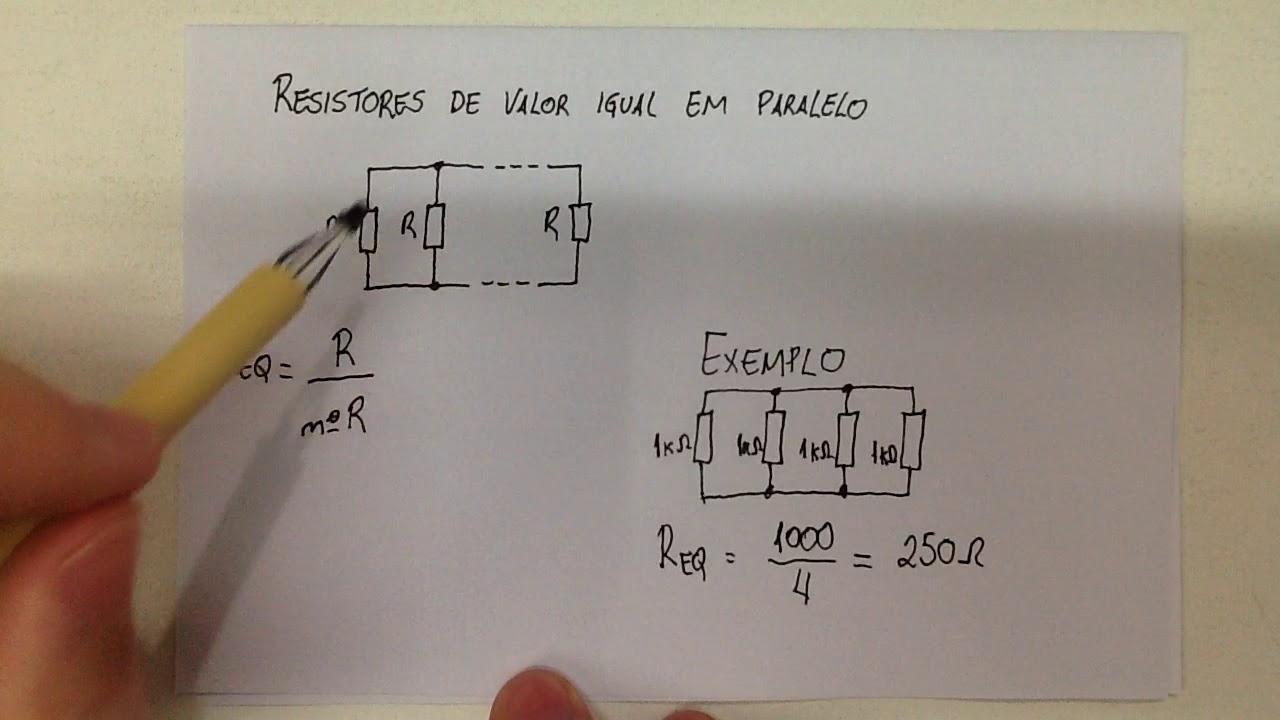 RESISTORES DE VALOR IGUAL EM PARALELO
R R
EQ = R
nº R
EXEMPLO
1KΩ 1KΩ 1KΩ 1KΩ
REQ = 1000 = 250Ω
4